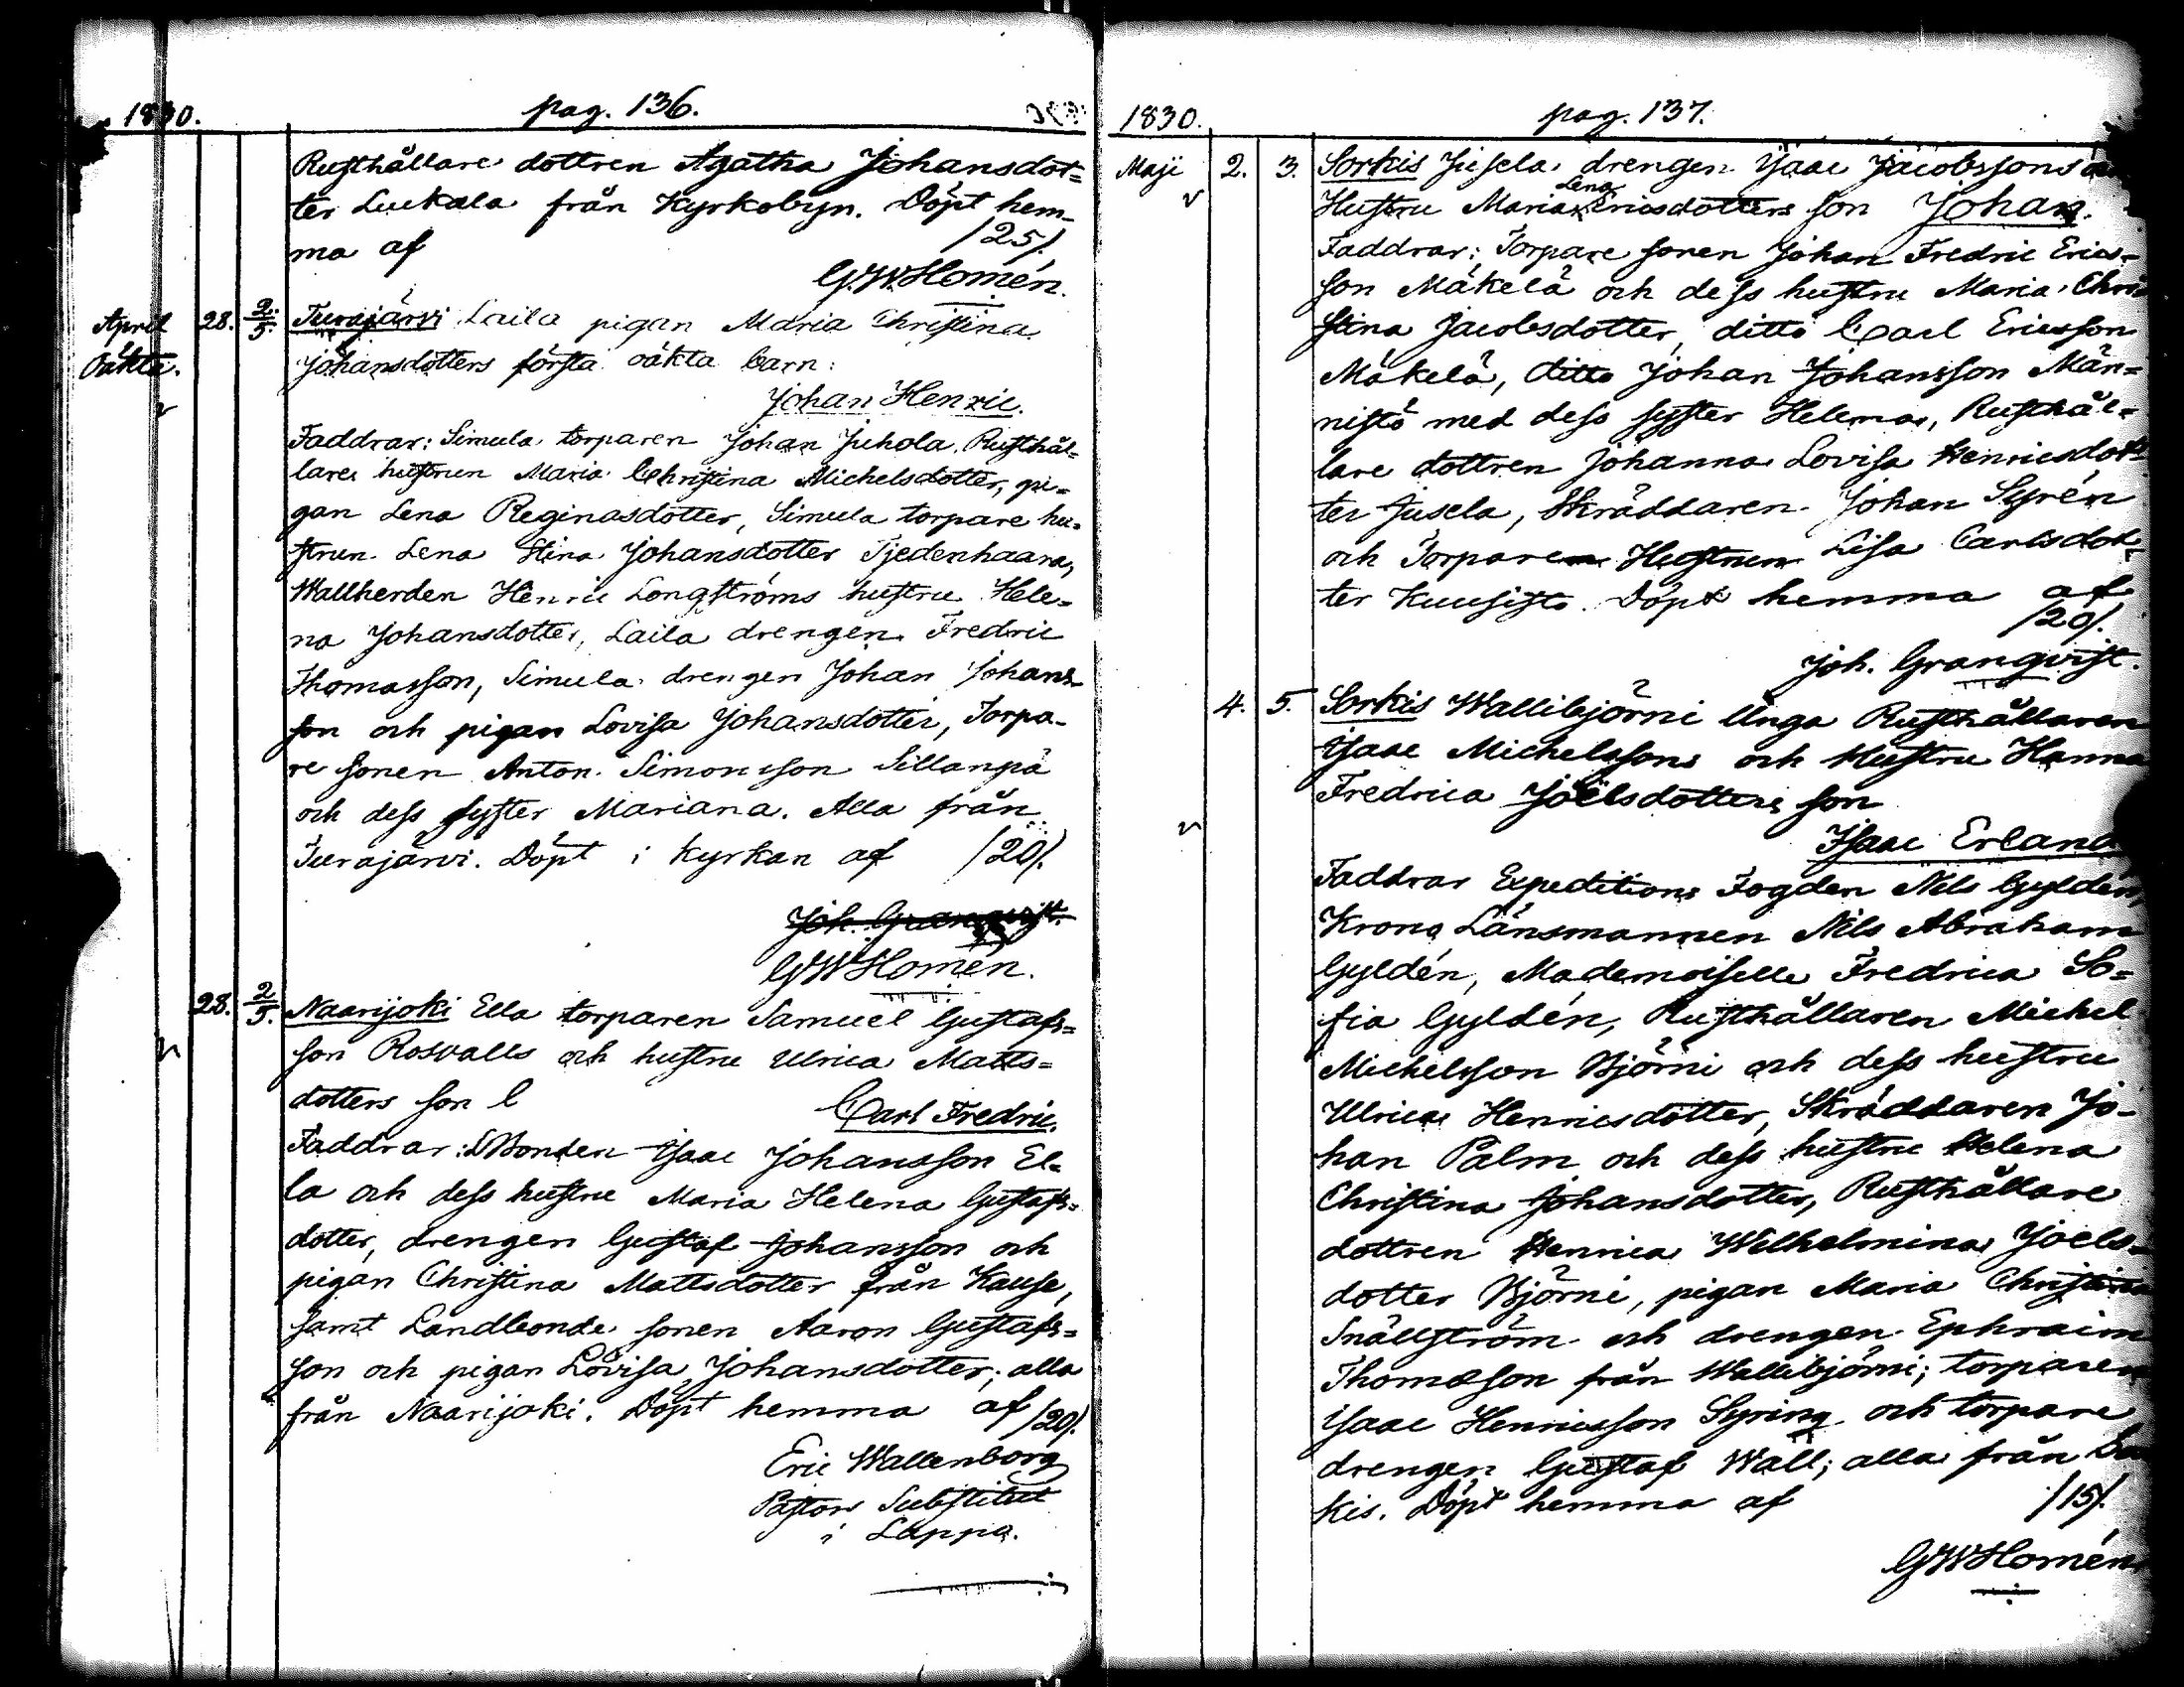 1830.
pag. 136.
Rusthållare dottren Agatha Johansdot=
ter Luckala från Kyrkobyn. Döpt hem-
ma af /25/.
G.W.Homén.
April 28. 2/5. Turajärvi Laila pigan Maria Christina
Oäkta. Johansdotters första oäkta barn:
Johan Henric.
Faddrar: Simula torparen Johan Juhola, Rusthål=
lare hustrun Maria Christina Michelsdotter, pi=
gan Lena Reginasdotter, Simula torpare hu=
strun Lena Stina Johansdotter Tjedenhaara,
Wallherden Henric Longströms hustru Hele=
na Johansdotter, Laila drengen Fredric
Thomasson, Simula drengen Johan Johans-
son och pigan Lovisa Johansdotter, Torpa-
re sonen Anton Simonsson Sillanpä
och dess syster Mariana. Alla från
Turajärvi. Döpt i Kyrkan af /20/.
Joh. Granqvist.
GWHomén.
28. 2/5. Naarijoki Ella torparen Samuel Gustafs=
son Rosvalls och hustru Ulrica Matts=
dotters son
Carl Fredric.
Faddrar: Bonden Isaac Johansson El=
la och dess hustru Maria Helena Gustafs=
dotter, drengen Gustaf Johansson och
pigan Christina Mattsdotter från Kause,
samt Landbonde sonen Aaron Gustafs=
son och pigan Lovisa Johansdotter; alla
från Naarijoki. Döpt hemma af /20/.
Eric Wallenborg
Pastors Substitut
i Lappo.
1830.
pag. 137.
Maji 2. 3. Sorkis Jusela drengen Isaac Jacobssons
Lena
Hustru Maria Ericsdotters son Johan.
Faddrar: Torpare sonen Johan Fredric Erics-
son Mäkelä och dess hustru Maria Chri
stina Jacobsdotter, ditto Carl Ericsson
Mäkelä, ditto Johan Johansson Män=
nistö med dess syster Helena, Rusthål=
lare dottren Johanna Lovisa Henricsdot=
ter Jusela, Skräddaren Johan Syrén
och Torpare Hustrun Lisa Carlsdot=
ter Kuusisto. Döpt hemma af
/20/.
Joh. Granqvist.
4. 5. Sorkis Wallibjörni Unga Rusthållaren
Isaac Michelssons och Hustru Hanna
Fredrica Joëlsdotters son
Isaac Erland
Faddrar Expeditions Fogden Nils Gyldén,
Krono Länsmannen Nils Abraham
Gyldén, Mademoiselle Fredrica So=
fia Gyldén, Rusthållaren Michel
Michelsson Björni och dess hustru
Ulrica Henricsdotter, Skräddaren Jo-
han Palm och dess hustru Helena
Christina Johansdotter, Rusthållare
dottren Henrica Wilhelmina Joels=
dotter Björni, pigan Maria Christina
Snällström och drengen Ephraim
Thomasson från Wallibjörni; torparen
Isaac Henricsson Syring och torpare
drengen Gustaf Wäll; alla från
kis. Döpt hemma af /15/.
GWHomén